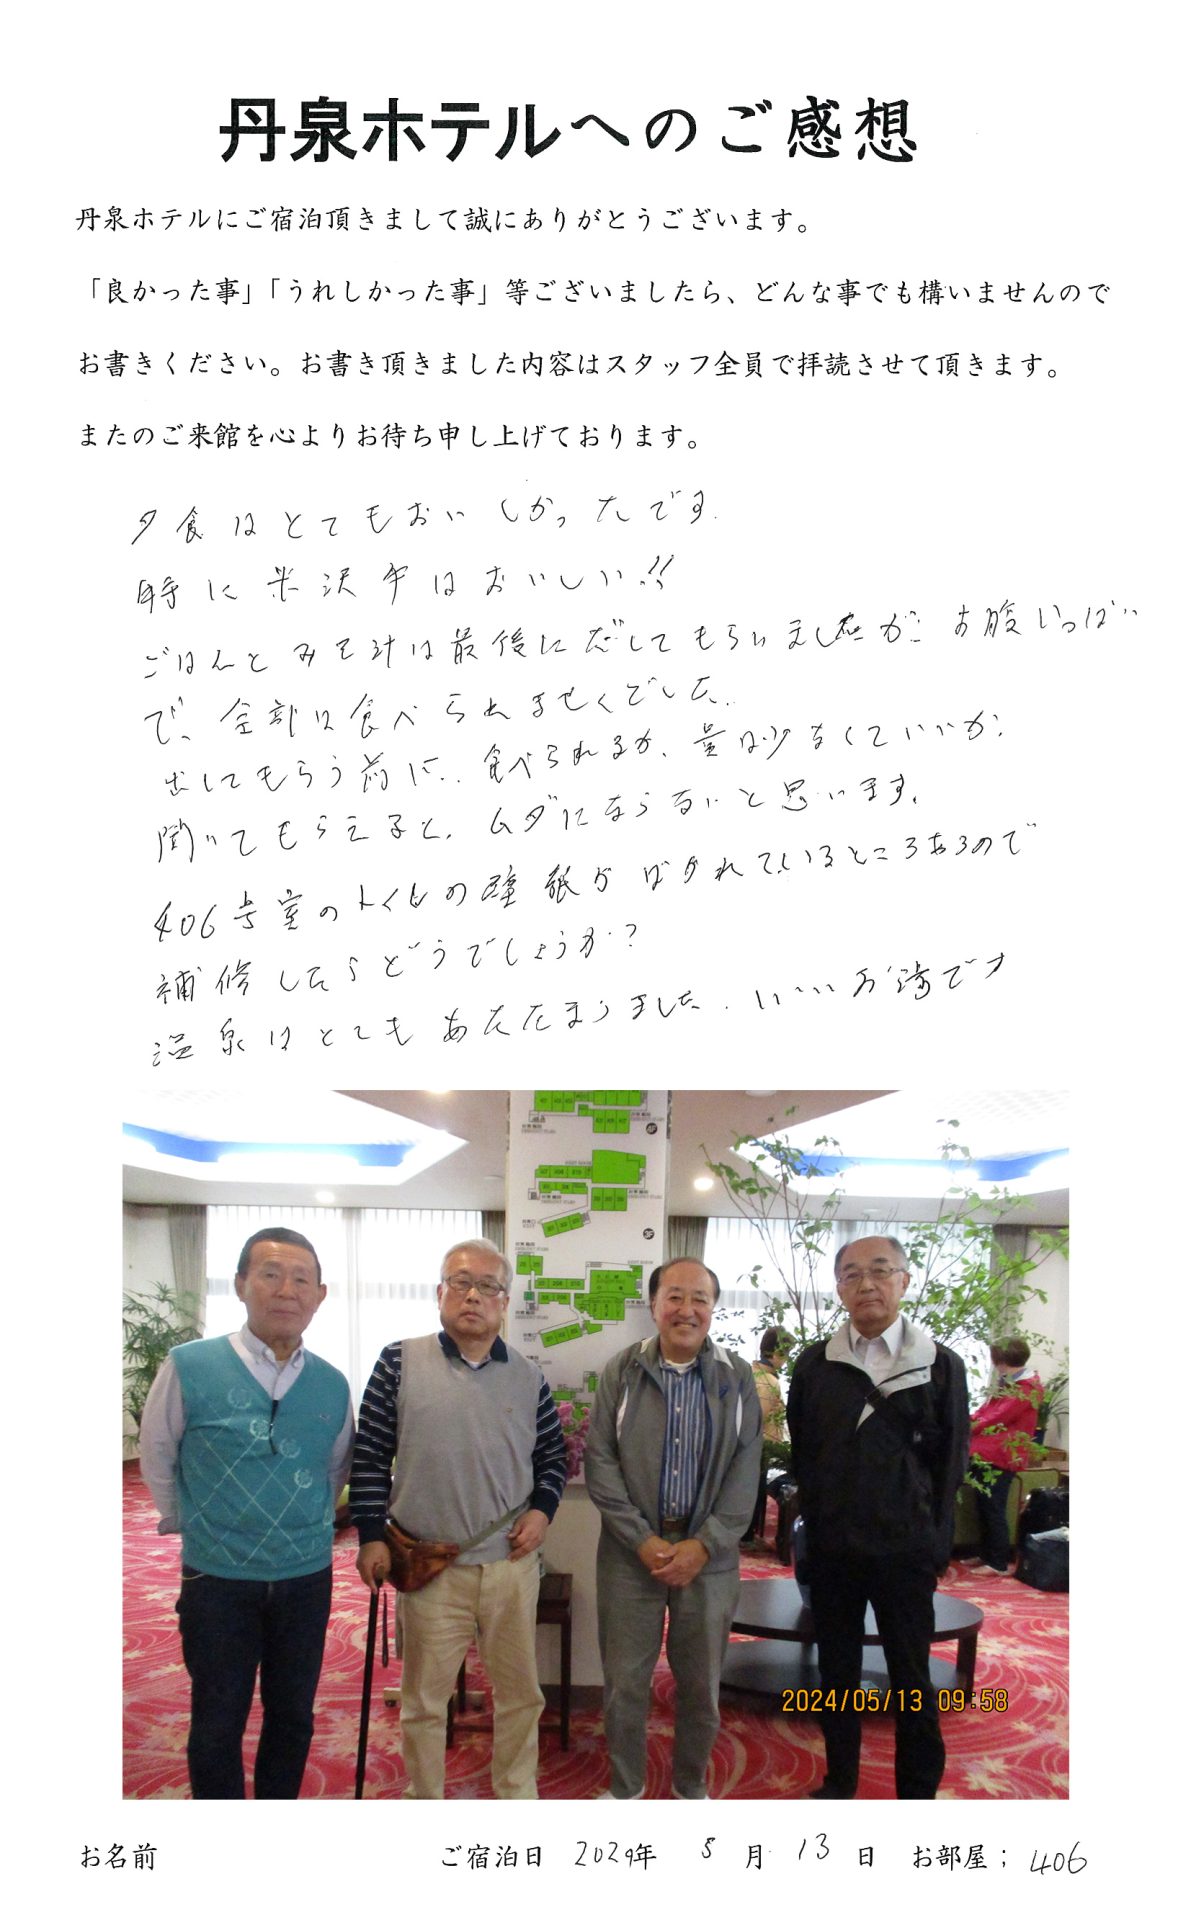 丹泉ホテルへのご感想
丹泉ホテルにご宿泊頂きまして誠にありがとうございます。
「良かった事」「うれしかった事」等ございましたら、どんな事でも構いませんので
お書きください。お書き頂きました内容はスタッフ全員で拝読させて頂きます。
またのご来館を心よりお待ち申し上げております。
夕食はとてもおいしかったです.
特に米沢牛はおいしい!!
ごはんとみそ汁は最後にだしてもらいましたが、お腹いっぱい
で、全部は食べられませんでした.
出してもらう前に、食べられるか、量は少なくていいか、
聞いてもらえると、ムダにならないと思います。
406号室のトイレの壁紙がはがれているところあるので
補修したらどうでしょうか?
温泉はとてもあたたまりました. いいお湯です
4F
3F
2024/05/13 09:58
お名前 ご宿泊日 2024年 5月 13日 お部屋; 406